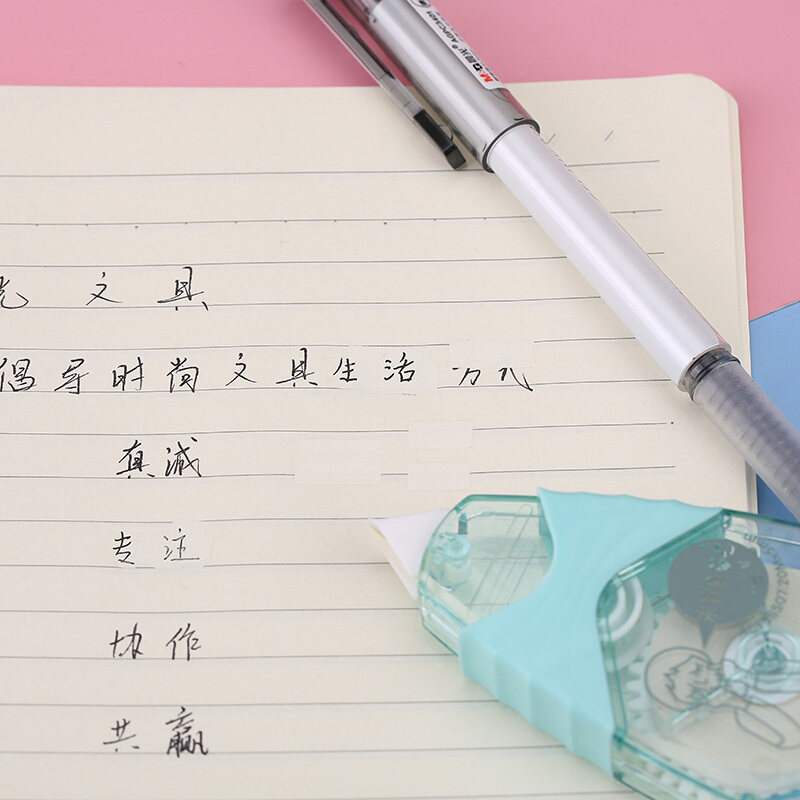 M&G 晨光® AGPC3401
光 文具
倡导时尚文具生活
真诚
专注
协作
共赢